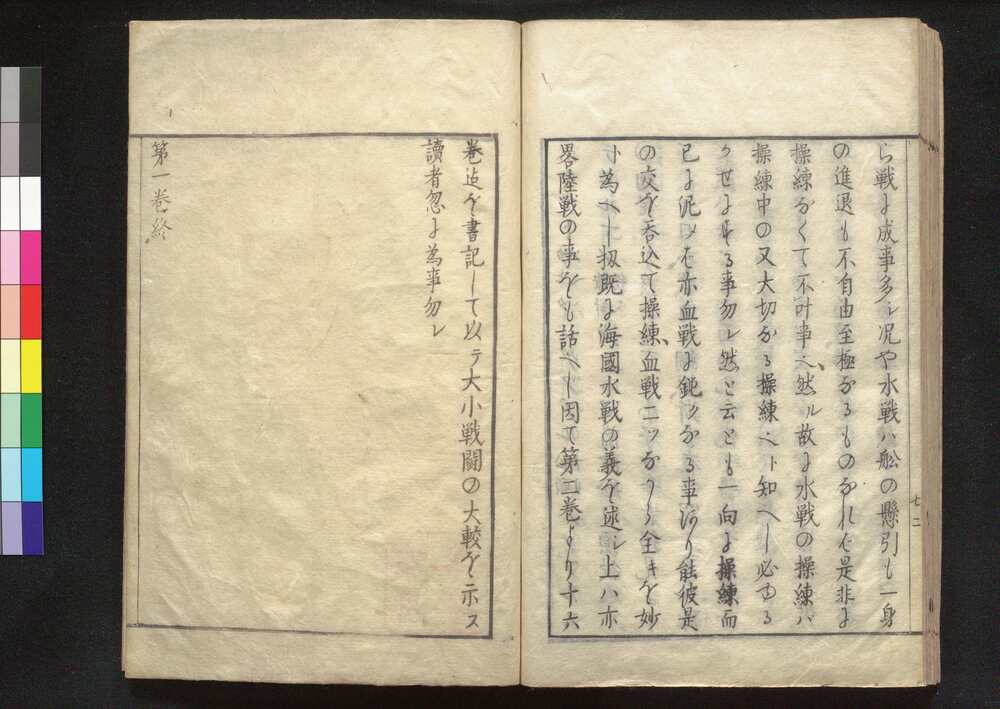 ら戦に成事多シ况や水戦ハ舩の懸引も一身
の進退も不自由至極なるものなれは是非に
操練なくて不叶事也然ル故に水戦の操練ハ
操練中の又大切なる操練也ト知へし必ゆる
かせにする事勿レ然と云とも一向に操練而
已に泥メは亦血戦に鈍クなる事有り能彼是
の交を呑込て操練血戦二ツなから全キを妙
ト為へし扨既に海國水戦の義を述シ上ハ亦
畧陸戦の事をも話へし因て第二巻より十六
七二
巻迄を書記して以テ大小戦闘の大較を示ス
讀者忽に為事勿レ
第一巻終